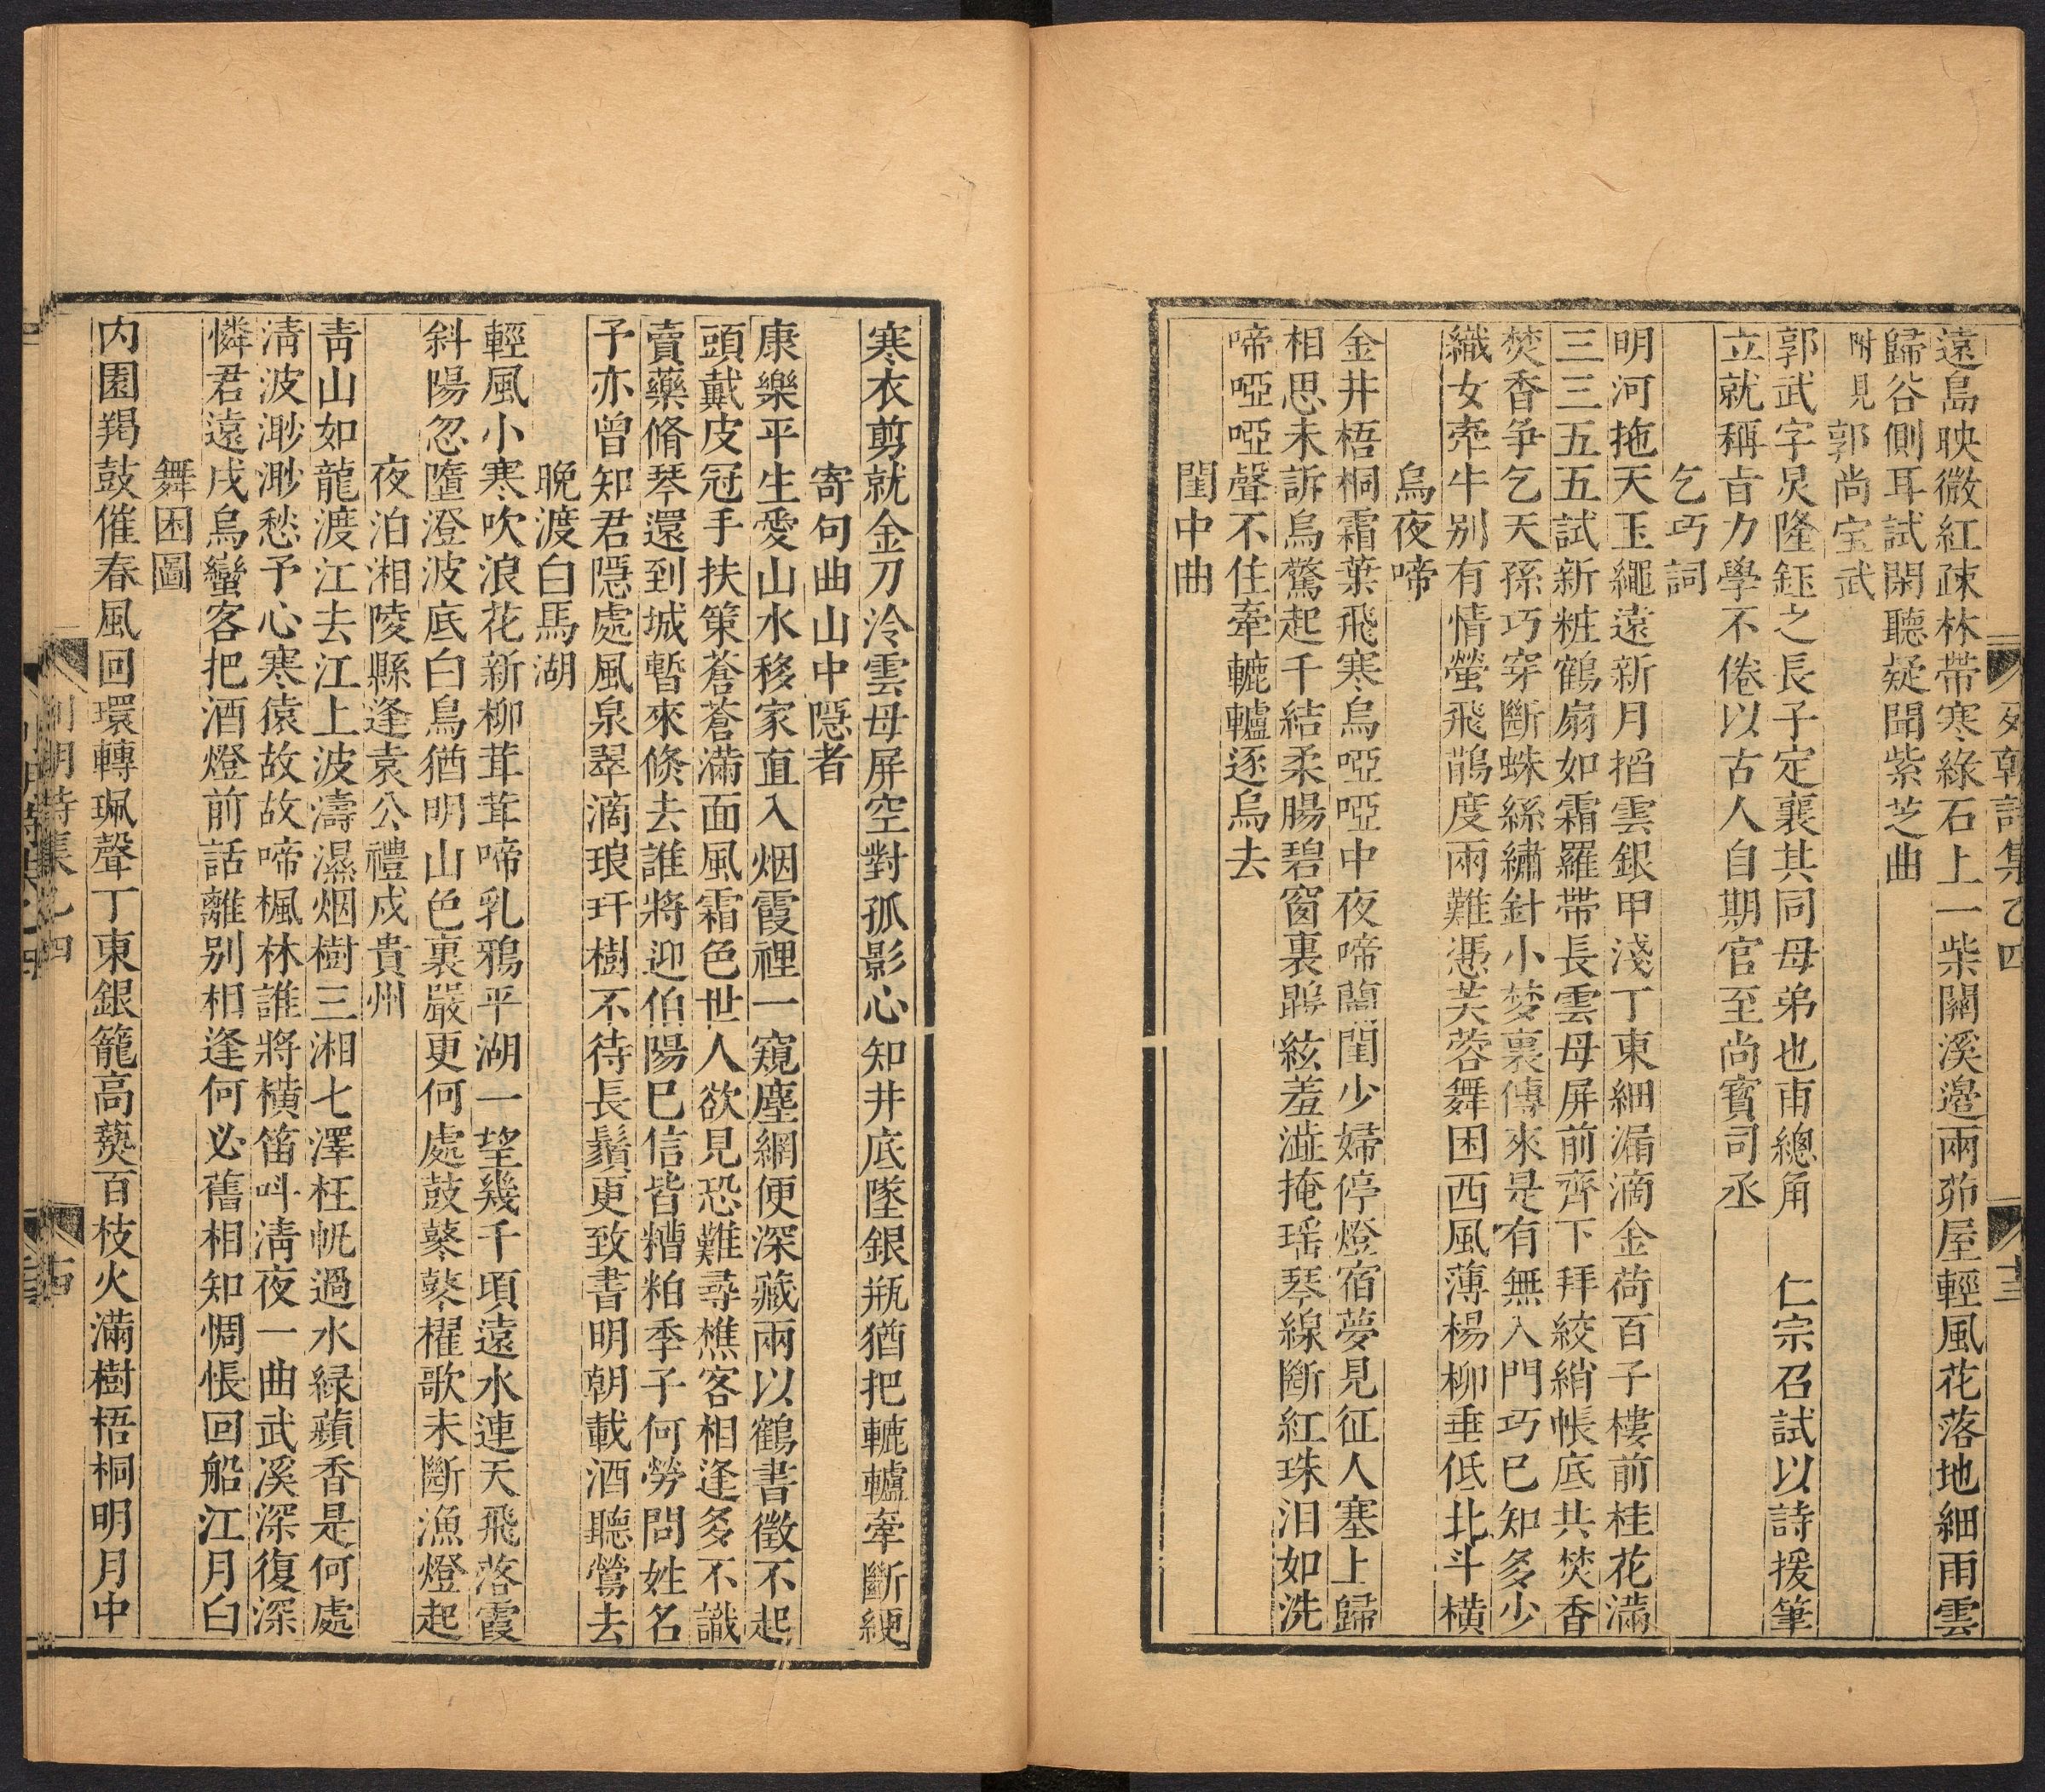 列朝詩集乙四
十三
遠島映微紅疎林帶寒綠石上一柴關溪邉兩茆屋輕風花落地細雨雲
歸谷側耳試閑聽疑聞紫芝曲
附見郭尚宝武
郭武字炅隆鈺之長子定襄其同母弟也甫總角 仁宗召試以詩援筆
立就稱旨力學不倦以古人自期官至尚寳司丞
乞巧詞
明河拖天玉繩遠新月搯雲銀甲淺丁東細漏滴金荷百子樓前桂花滿
三三五五試新粧鶴扇如霜羅帶長雲母屏前齊下拜絞綃帳底共焚香
焚香争乞天孫巧穿斷蛛絲繡針小夢裏傳來是有無入門巧巳知多少
織女牽牛别有情螢飛鵲度兩難憑芙蓉舞困西風薄楊柳垂低北斗横
烏夜啼
金井梧桐霜葉飛寒烏啞啞中夜啼蘭閨少婦停燈宿夢見征人塞上歸
相思未訴烏驚起千結柔腸碧窗裏鵾絃羞澁掩瑶琴線斷紅珠泪如洗
啼啞啞聲不住牽轆轤逐烏去
閨中曲
寒衣剪就金刀泠雲母屏空對孤影心知井底墜銀瓶猶把轆轤牽斷綆
寄句曲山中隠者
康樂平生愛山水移家直入烟霞裡一窺塵網便深藏兩以鶴書徵不起
頭戴皮冠手扶策蒼蒼滿面風霜色世人欲見恐難尋樵客相逢多不識
賣藥脩琴還到城暫來倐去誰將迎伯陽巳信皆糟粕季子何勞問姓名
予亦曾知君隱處風泉翠滴琅玕樹不待長鬚更致書明朝載酒聽鶯去
晚渡白馬湖
輕風小寒吹浪花新柳茸茸啼乳鴉平湖一望幾千頃遠水連天飛落霞
斜陽忽墮澄波底白鳥猶明山色裏嚴更何處鼓鼕鼕櫂歌未斷漁燈起
夜泊湘陵縣逢袁公禮戍貴州
青山如龍渡江去江上波濤濕烟樹三湘七澤枉帆過水緑蘋香是何處
淸波渺渺愁予心寒猿故故啼楓林誰將横笛呌淸夜一曲武溪深復深
憐君遠戍烏蠻客把酒燈前話離别相逢何必舊相知惆悵回船江月白
舞困圖
内園羯鼓催春風回環轉珮聲丁東銀籠高爇百枝火滿樹梧桐明月中
列朝詩集乙四
十四